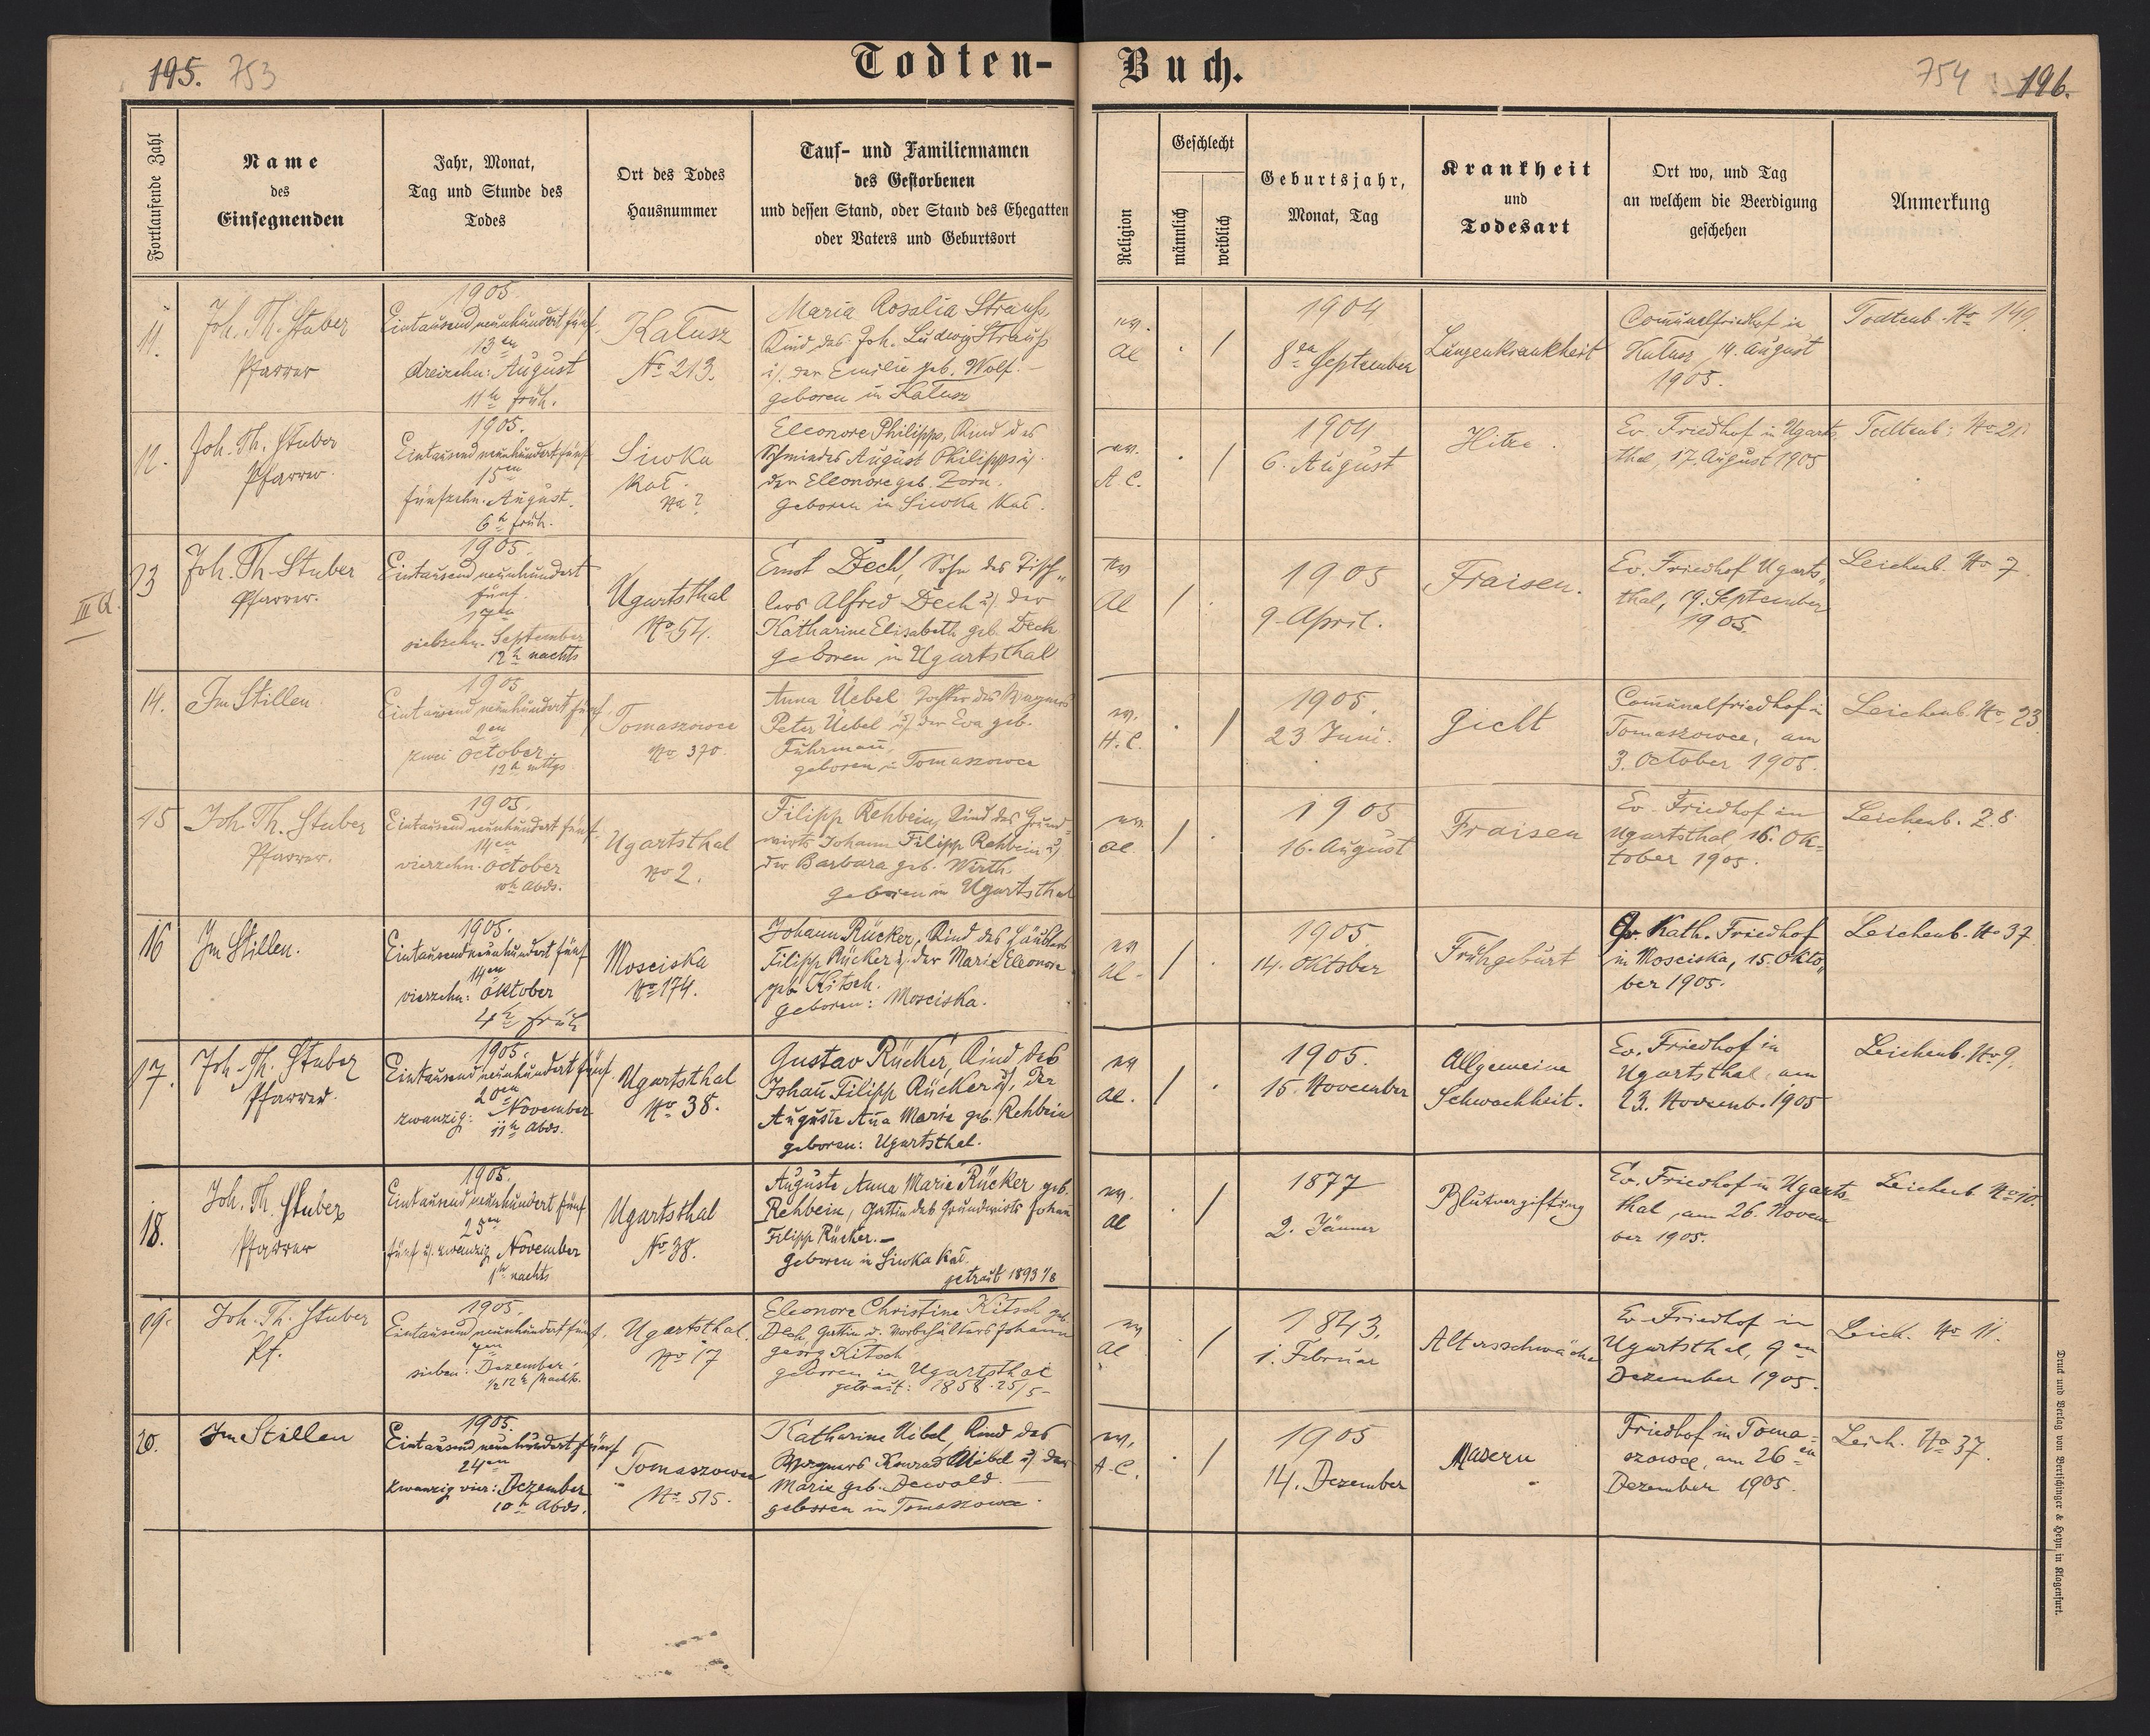 195. 753
Todten-Buch.
754 196.
Fortlaufende Zahl
Name
des
Einsegnenden
Jahr, Monat,
Tag und Stunde des
Todes
Ort des Todes
Hausnummer
Tauf- und Familiennamen
des Gestorbenen
und dessen Stand, oder Stand des Ehegatten
oder Vaters und Geburtsort
Religion
Geschlecht
männlich
weiblich
Geburtsjahr,
Monat, Tag
Krankheit
und
Todesart
Ort wo, und Tag
an welchem die Beerdigung
geschehen
Anmerkung
11.
Joh. Th. Stuber
Pfarrer
1905.
Eintausend neunhundert fünf
13en
dreizehn: August
11h früh.
Kałusz
No 213.
Maria Rosalia Strauß,
Kind des Joh. Ludwig Strauß
u/. der Emilie geb. Wolf. –
geboren in Kałusz
ev.
AC
. /
1904
8en September
Lungenkrankheit
Com̅unalfriedhof in
Kałusz, 14. August
1905.
Todtenb. No 149.
12.
Joh. Th. Stuber
Pfarrer.
1905.
Eintausend neunhundert fünf
15en
fünfzehn. August.
6h früh.
Siwka
Kał.
No ?
Eleonore Philipps, Kind des
Schmiedes August Philipps u/.
der Elleonore geb. Zorn.
geboren in Siwka Kał.
ev.
A.C.
. /
1904
6. August
Hitze.
Ev. Friedhof in Ugarts
thal, 17. August 1905
Todtenb: No 21.
III Q.
13
Joh. Th. Stuber
Pfarrer.
1905.
Eintausend neunhundert
fünf.
17en
siebzehn. September
12h nachts
Ugartsthal
No 54.
Ernst Dech, Sohn des Tisch„
lers Alfred Dech u/. der
Katharine Elisabeth geb. Dech
geboren in Ugartsthal
ev
AC
/ .
1905
9. April.
Fraisen.
Ev. Friedhof Ugarts„
thal, 19. September
1905.
Leichenb. No 7.
14.
Im Stillen.
1905
Eintausend neunhundert fünf.
2en
zwei October.
12h mttgs.
Tomaszowce
No 370.
Anna Uebel, Tochter des Wagners
Peter Uebel u/. der Eva geb.
Fuhrman̅,
geboren in Tomaszowce
ev.
H.C.
. /
1905.
23 Juni.
Gicht
Com̅unalfriedhof in
Tomaszowce, am
3. October 1905.
Leichenb. No 23
15
Joh. Th. Stuber
Pfarrer.
1905.
Eintausend neunhundert fünf.
14en
vierzehn. October
10h abds.
Ugartsthal
No 2.
Filipp Rehbein, Kind des Grund-
wirts Johann Filipp Rehbein u/
der Barbara geb. Wirth.
geboren in Ugartsthal
ev.
AC
/ .
1905
16. August
Fraisen
Ev. Friedhof in
Ugartsthal, 16. Ok-
tober 1905.
Leichenb. 28.
16
Im Stillen.
1905.
Eintausend neunhundert fünf
14en
vierzehn: Oktober
4h früh
Mosciska
No 174.
Johann Rücker, Kind des Häuslers
Filipp Rücker u/. der Marie Eleonore
geb. Kitsch.
geboren: Mosciska.
ev
AC
/ .
1905.
14. Oktober
Frühgeburt
Gr. Kath. Friedhof
in Mosciska, 15. Okto„
ber 1905.
Leichenb. No 37.
17.
Joh. Th. Stuber
Pfarrer.
1905.
Eintausend neunhundert fünf.
20en
zwanzig: November
11h abds.
Ugartsthal
No 38.
Gustav Rücker, Kind des
Johan̅ Filipp Rücker u/. der
Auguste An̅a Marie geb. Rehbein
geboren: Ugartsthal.
ev
AC.
/ .
1905.
15. November
Allgemeine
Schwachheit.
Ev. Friedhof in
Ugartsthal, am
23. Novemb. 1905
Leichenb. No 9.
18.
Joh. Th. Stuber
Pfarrer
1905.
Eintausend neunhundert fünf
25en
fünf u/. zwanzig November
1h nachts
Ugartsthal
No 38.
Auguste Anna Marie Rücker geb.
Rehbein, Gattin des Grundwirts Johan̅
Filipp Rücker.–
geboren in Siwka Kał.
getraut 1893 1/8
ev.
AC
. /
1877
2. Jänner
Blutvergiftung
Ev. Friedhof in Ugarts-
thal, am 26. Novem
ber 1905.
Leichenb. No 10.
19.
Joh. Th. Stuber
Pf.
1905.
Eintausend neunhundert fünf.
7en
sieben: Dezember.
1/2 12h Nachts.
Ugartsthal.
No 17
Eleonore Christine Kitsch geb.
Dech, Gattin d. Vorbehälters Johann
Georg Kitsch
geboren in Ugartsthal
getraut: 1858. 25/5 –
ev
AC
. /
1843.
1. Februar
Altersschwäche
Ev. Friedhof in
Ugartsthal, 9en
Dezember 1905.
Leich. No 11.
20.
Im Stillen
1905.
Eintausend neunhundert fünf
24en
zwanzig vier: Dezember
10h Abds.
Tomaszowce
No 515.
Katharine Uibel, Kind des
Wagners Konrad Uibel u/. der
Marie geb. Dewald. –
geboren in Tomaszowce.
ev.
A.C.
. /
1905
14. Dezember
Masern
Friedhof in Toma-
szowce, am 26en
Dezember 1905.
Leich. No 37.
Druck und Verlag von Bertschinger & Heyn in Klagenfurt.